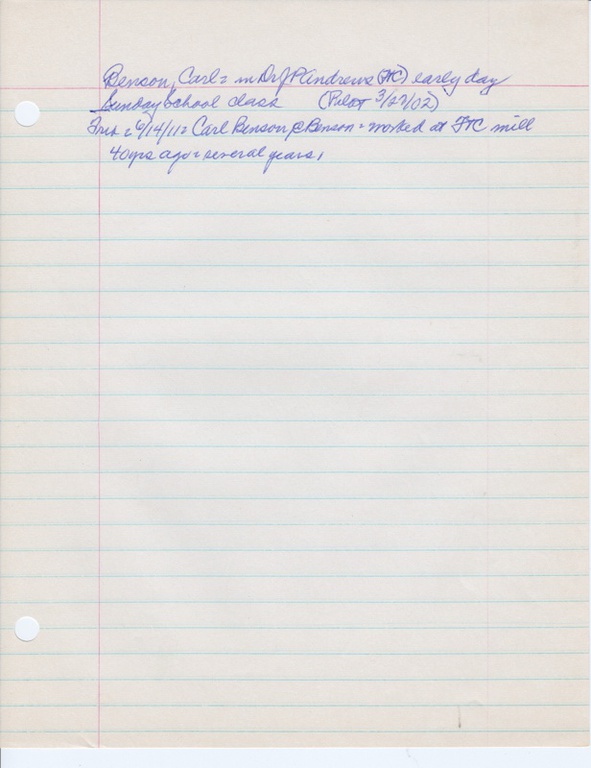 Benson, Carl = in Dr JP Andrews (FTC) early day
Sunday School class (Pilot 3/27/02)
6/14/11 = Carl Benson @ Benson = worked at FTC mill
40 yrs ago = several years,